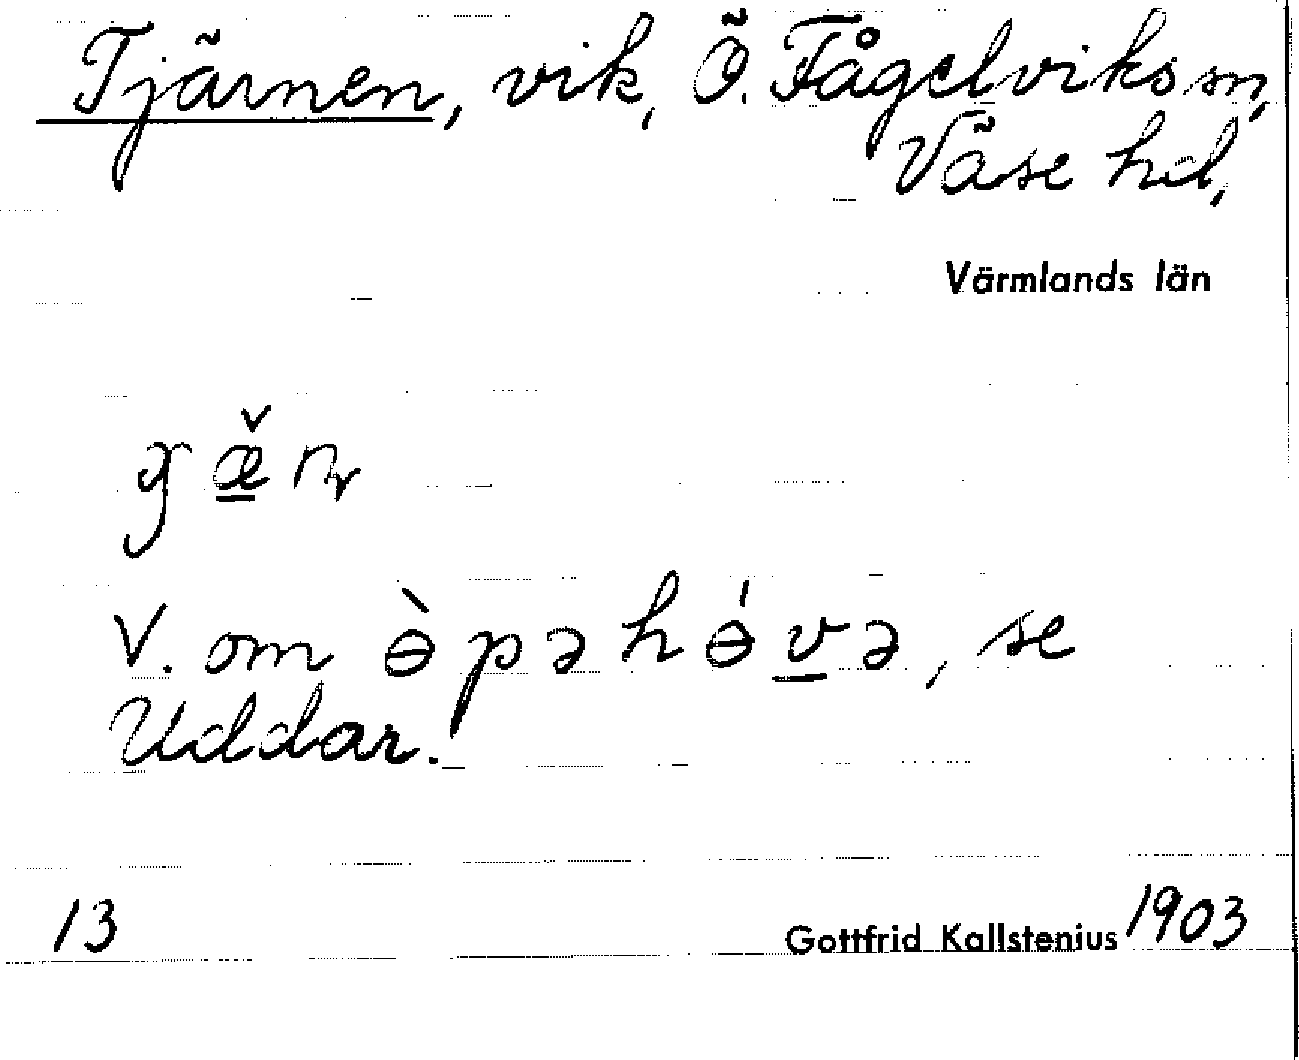 Tjärnen, vik, Ö. Fågelviks sn,
Väse hd,
Värmlands län
V. om ɵ̀pəhɵ́və, se
Uddar.
13 Gottfrid Kallstenius 1903